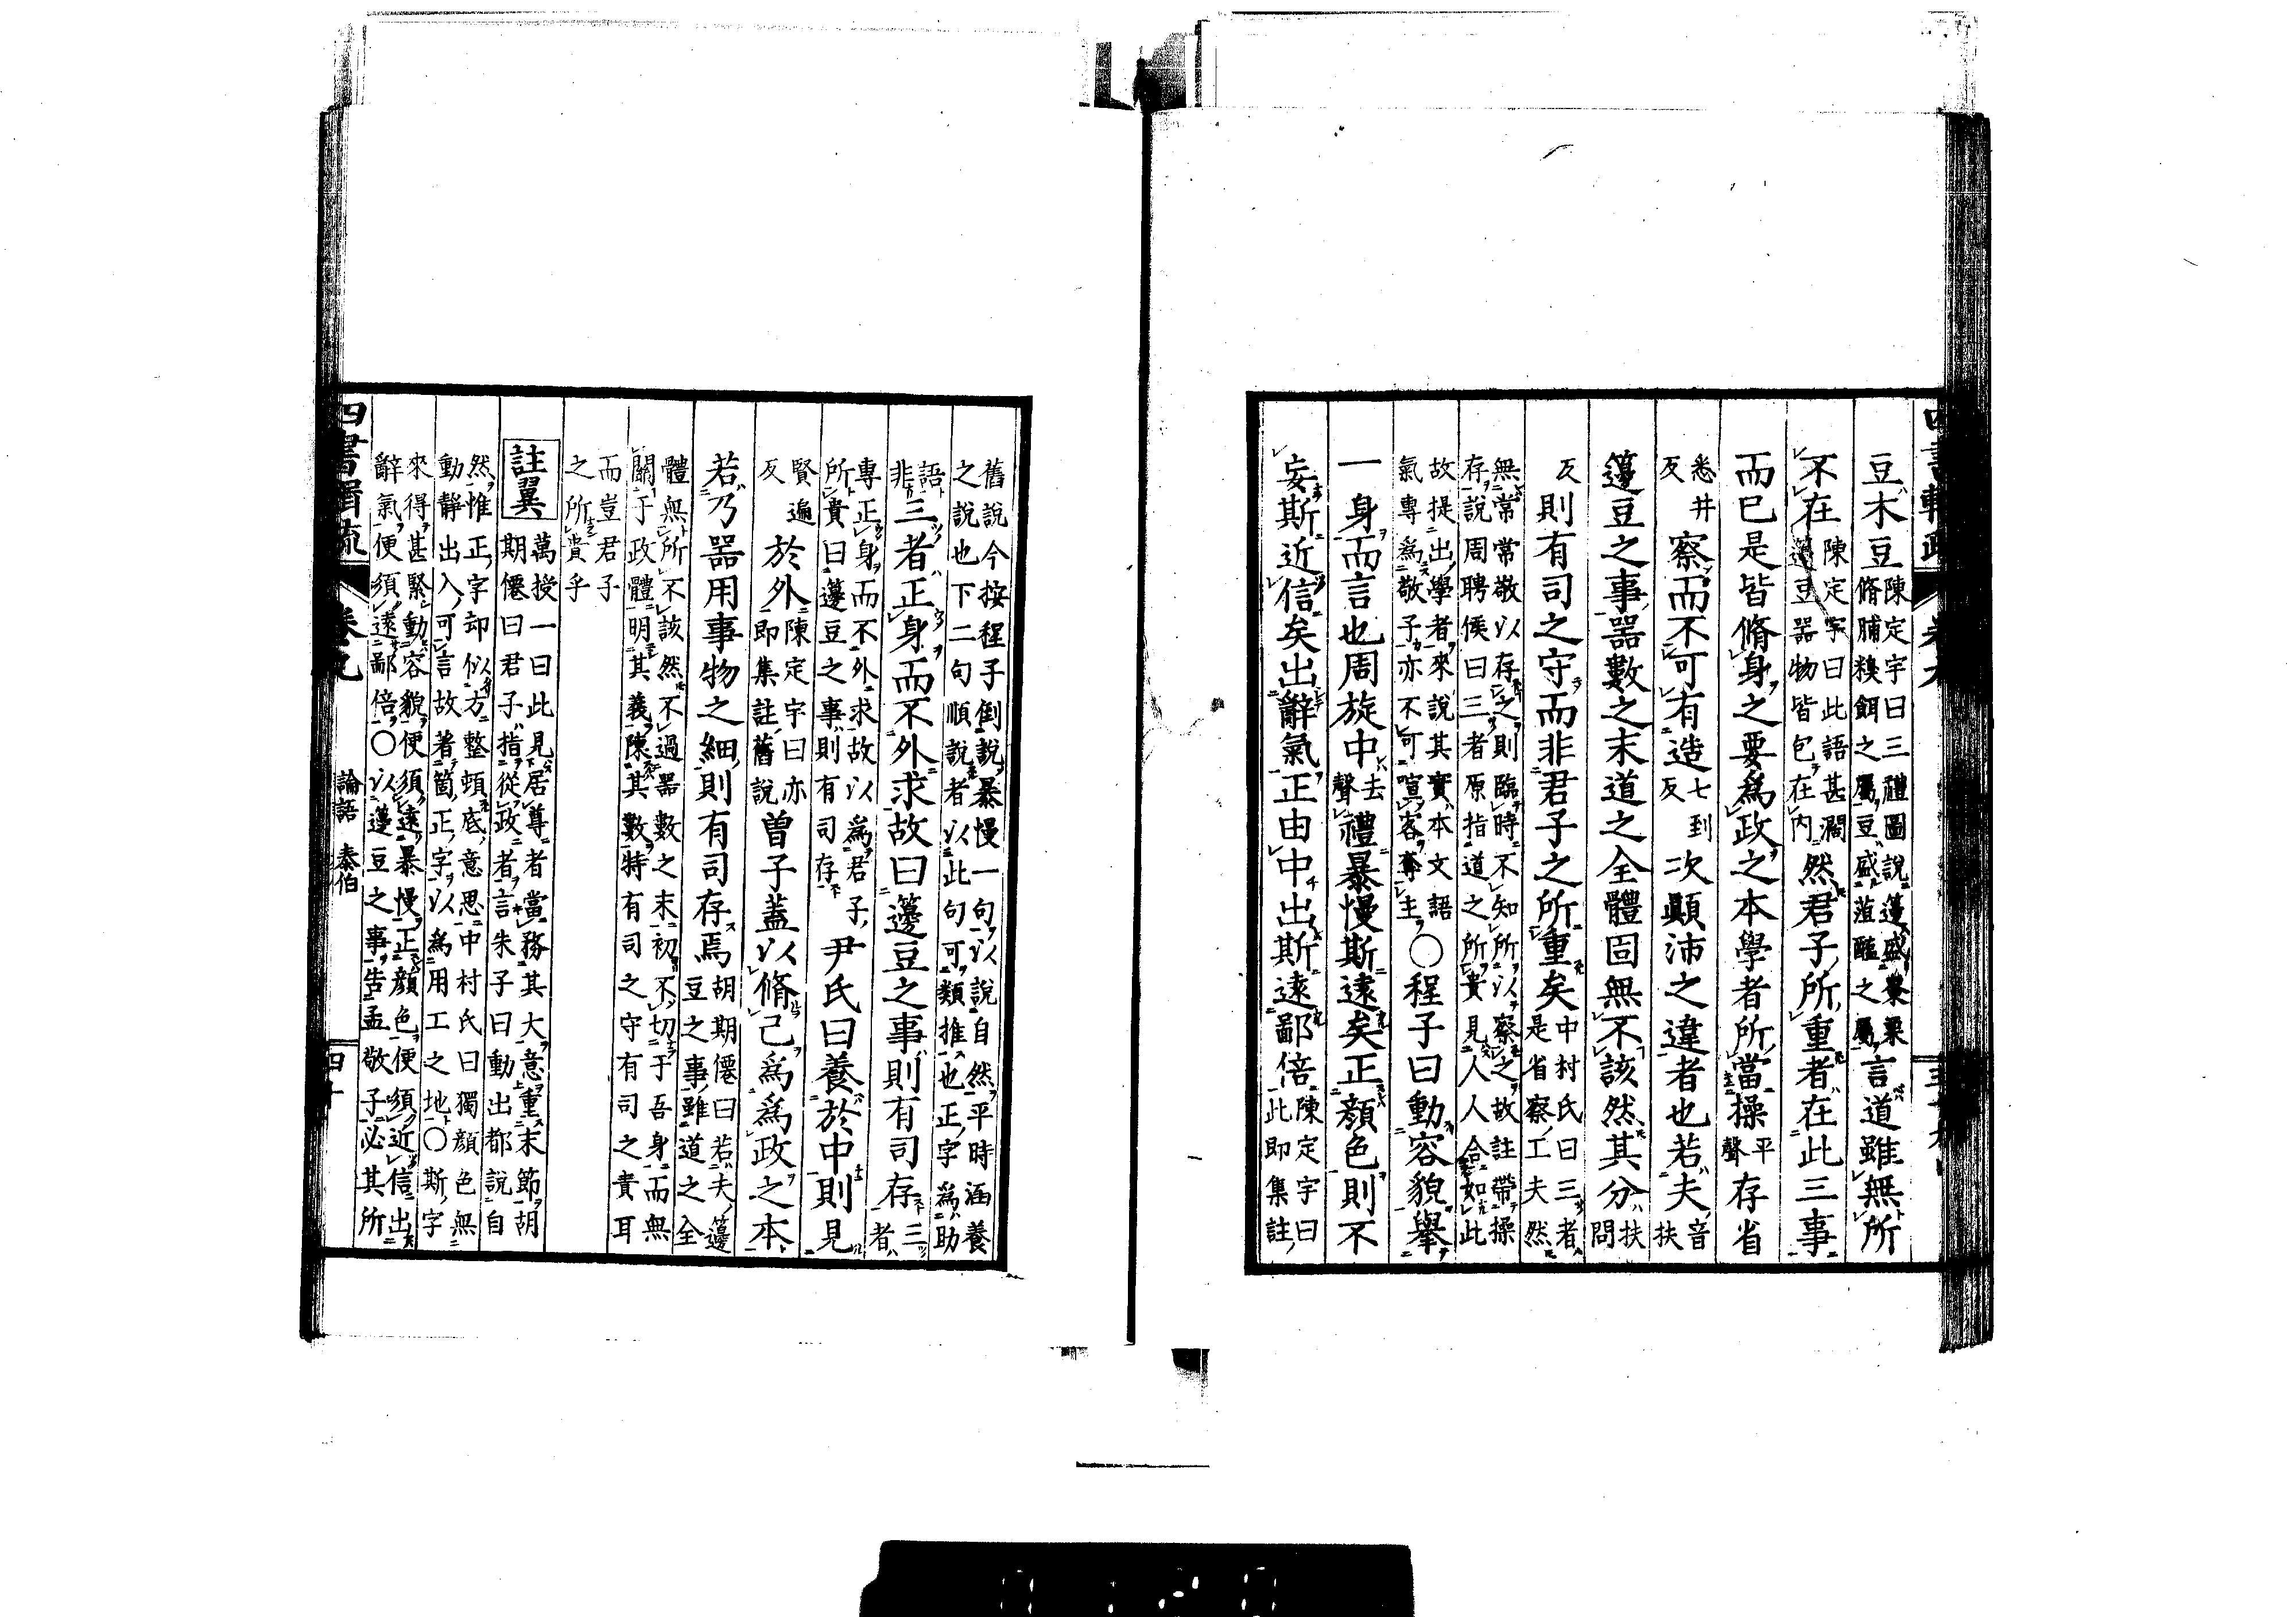 豆木豆陳定宇曰三禮圖說籩盛棗栗脩脯糗餌之屬豆盛菹醢之屬言道雖無所
不在陳定宇曰此語甚濶籩豆器物皆包在內然君子所重者在此三事
而已是皆脩身之要爲政之本學者所當操平聲存省
悉井反察而不可有造七到反次顚沛之違者也若夫音扶
籩豆之事器數之末道之全體固無不該然其分扶問
反則有司之守而非君子之所重矣中村氏曰三者是省察工夫然
無常常敬以存之則臨時不知所以察之故註帶操存說周聘侯曰三者原指道之所貴見人人合如此
故提出學者來說其實本文語氣專爲敬子亦不可喧客奪主〇程子曰動容貌舉
一身而言也周旋中去聲禮暴慢斯遠矣正顏色則不
妄斯近信矣出辭氣正由中出斯遠鄙倍陳定宇曰此即集註
舊說今按程子倒說暴慢一句以說自然平時涵養之說也下二句順說者以此句可類推也正字爲助
語非三者正身而不外求故曰籩豆之事則有司存三者
專正身而不外求故以爲君子所貴曰籩豆之事則有司存尹氏曰養於中則見
賢遍反於外陳定宇曰亦即集註舊說曾子蓋以脩己爲爲政之本
若乃器用事物之細則有司存焉胡期僊曰若夫籩豆之事雖道之全
體無所不該然不過器數之末初不切于吾身而無關于政體明其義陳其數特有司之守有司之責耳
而豈君子之所貴乎
註翼萬授一曰此見居尊者當務其大意重末節胡期僊曰君子指從政者言朱子曰動出都說自
然惟正字却似方整頓底意思中村氏曰獨顏色無動靜出入可言故著箇正字以爲用工之地〇斯字
來得甚緊動容貌便須遠暴慢正顏色便須近信出辭氣便須遠鄙倍〇以籩豆之事告孟敬子必其所
四書輯疏
卷九
論語 泰伯
四十